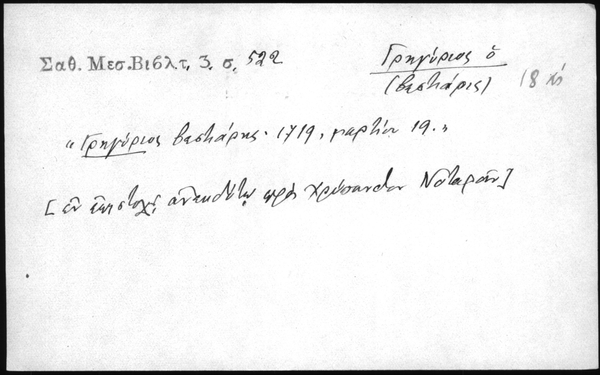 Σαθ. Μεσ.Βιβλτ, 3. σ. 522
Γρηγόριος ὁ
(βεστιάρις)
18 αἰ
"Γρηγόριος βεστιάρης. 1719, μαρτίου 19."
[ἐν ἐπιστολῇ ἀνεκδότῳ πρὸς Χρύσανθον Νοταρᾶν]